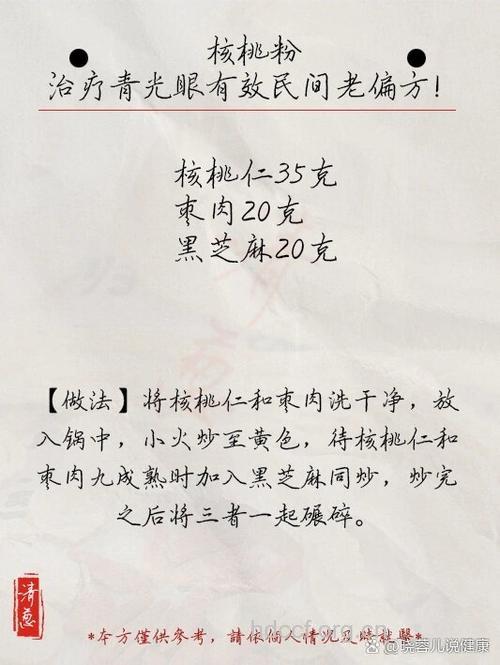 核桃粉
治疗青光眼有效民间老偏方！
核桃仁35克
枣肉20克
黑芝麻20克
【做法】将核桃仁和枣肉洗干净，放
入锅中，小火炒至黄色，待核桃仁和
枣肉九成熟时加入黑芝麻同炒，炒完
之后将三者一起碾碎。
清蔥
*本方僅供參考，請依個人情況及時就醫*
hdocf.org.cn
晓蓉儿说健康